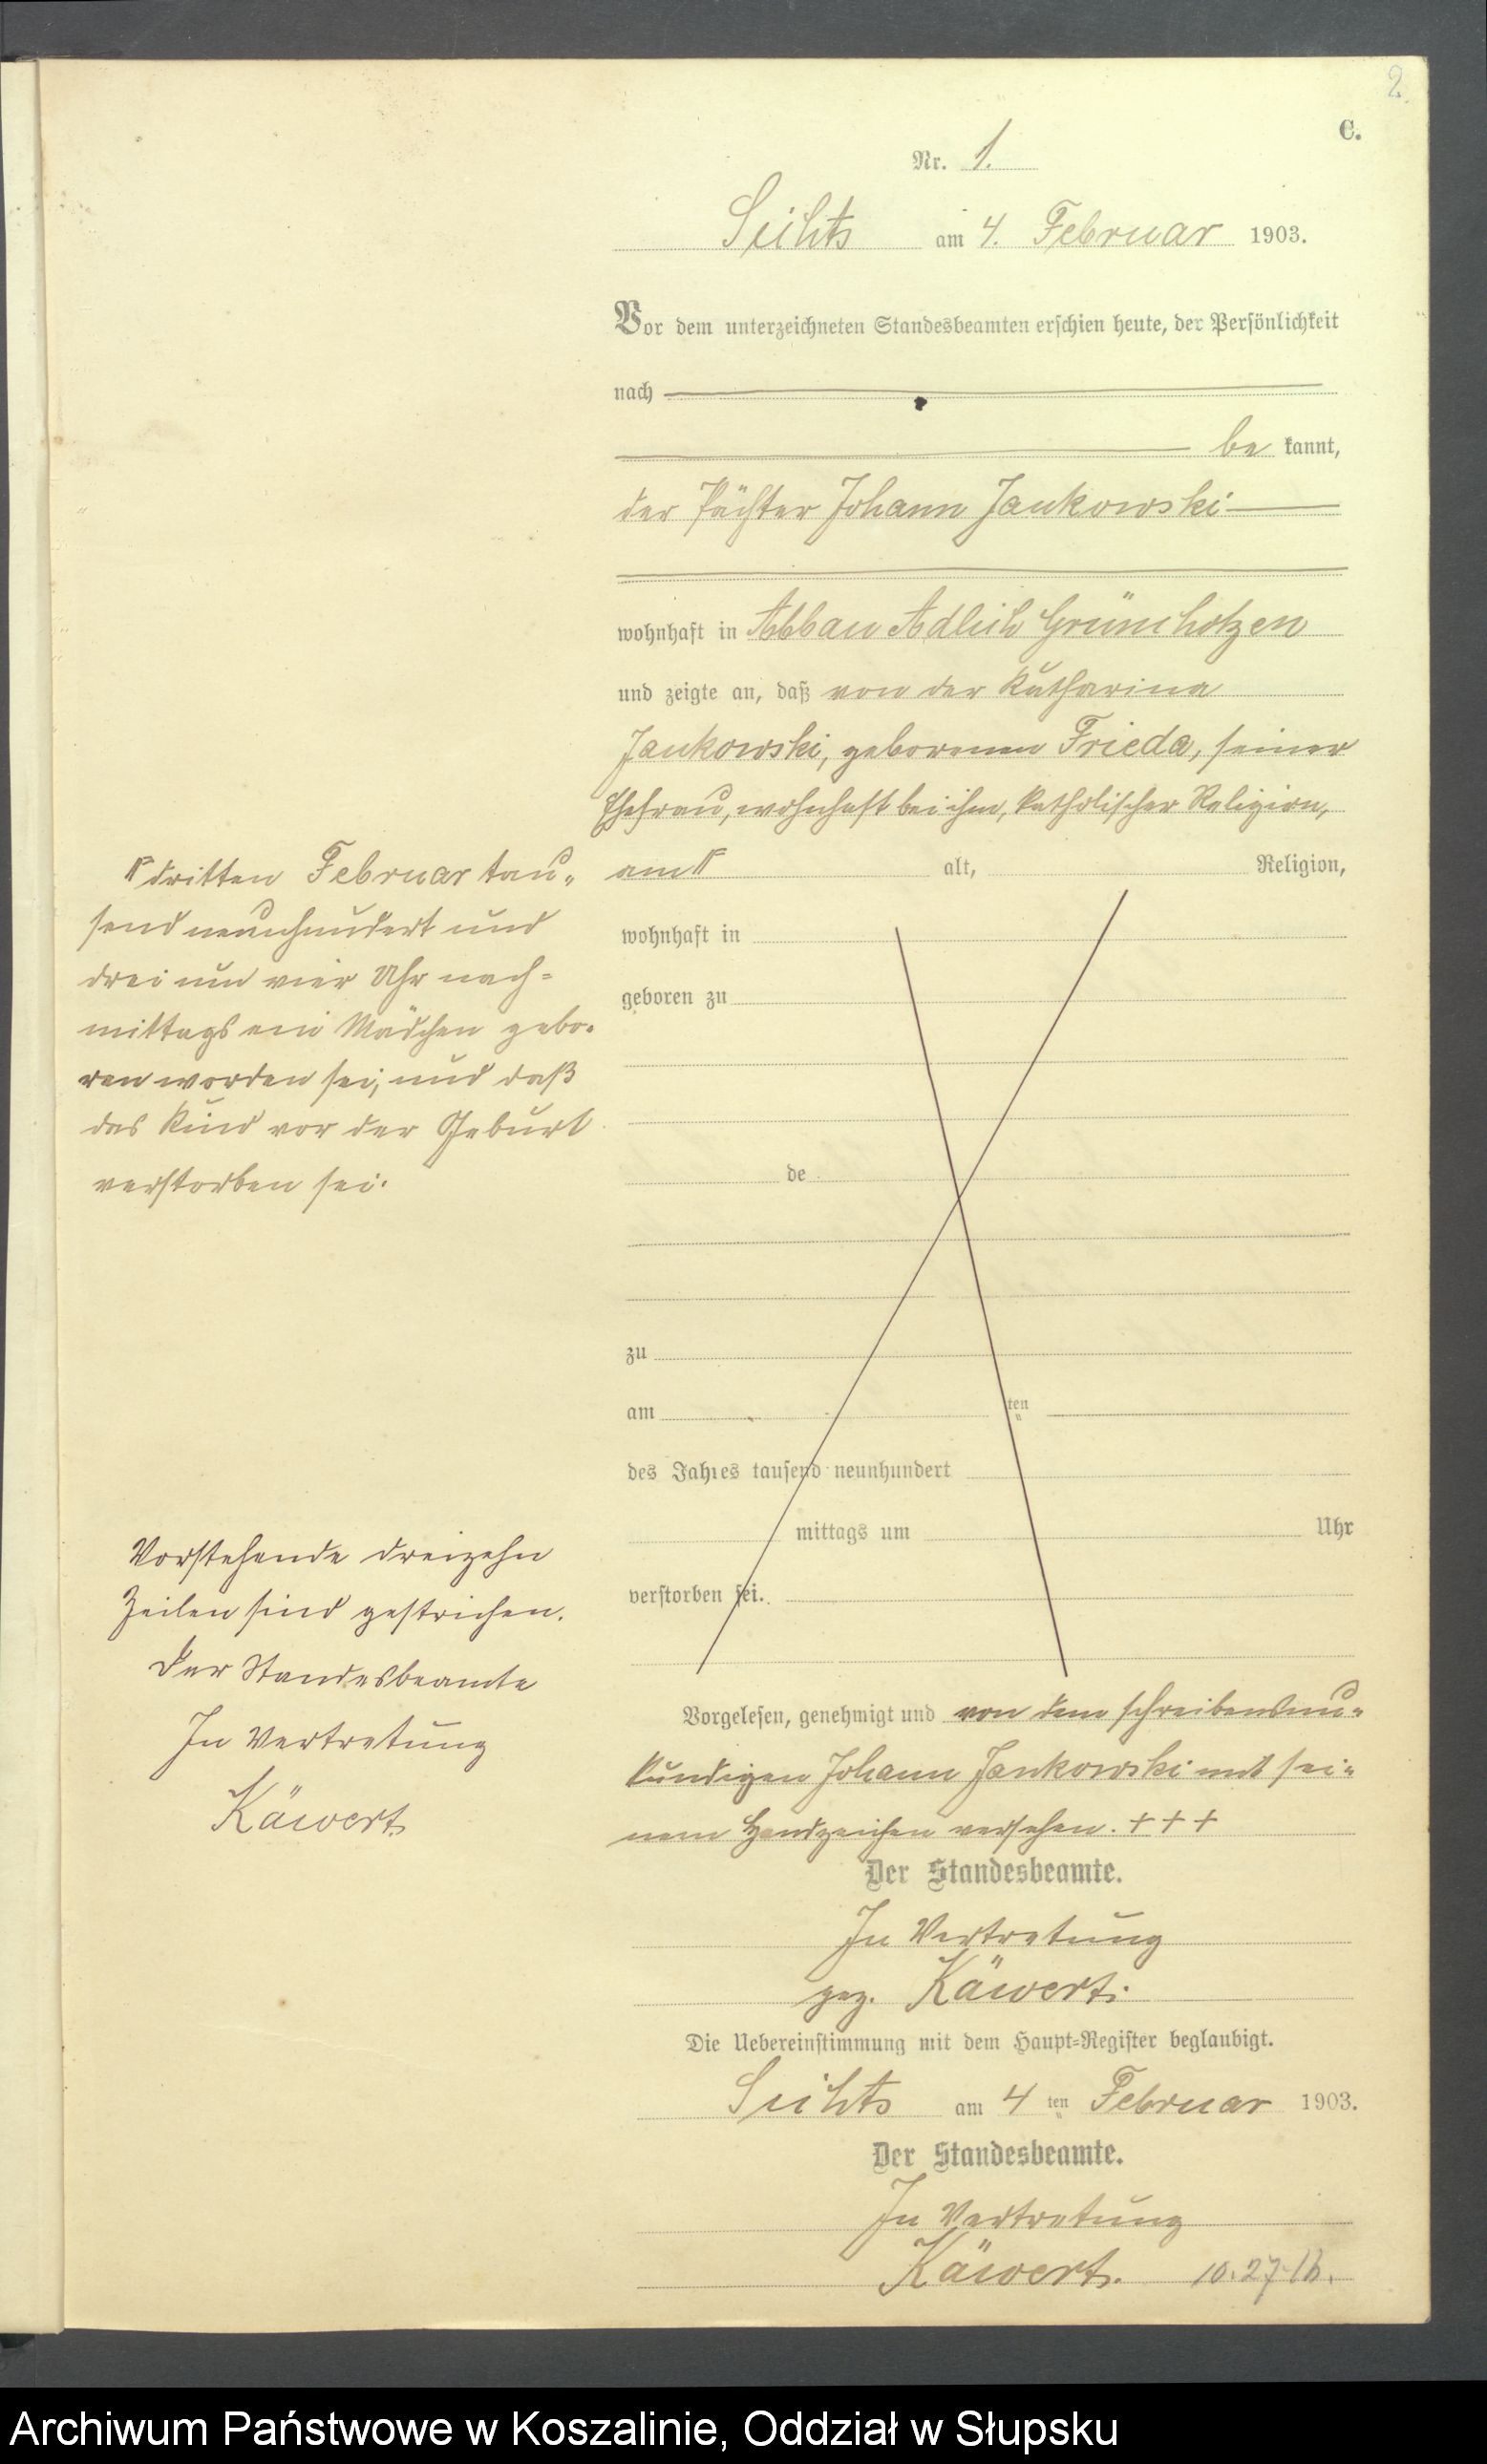 2
C.
Nr. 1.
am 4. Februar 1903.
Vor dem unterzeichneten Standesbeamten erschien heute, der Persönlichkeit
nach
be kannt,
der Pächter Johann Jankowski
wohnhaft in Abbau Adlich
und zeigte an, daß von der Katharina
Jankowski, geborenen Frieda, seiner
Ehefrau, wohnhaft bei ihm, katholischer Religion,
am ┌ alt, Religion,
┌ dritten Februar tau-
send neunhundert und
drei um vier Uhr nach=
mittags ein Mädchen gebo-
ren worden sei, und daß
das Kind vor der Geburt
verstorben sei.
wohnhaft in
geboren zu
de
zu
am ten
des Jahres tausend neunhundert
mittags um Uhr
verstorben sei.
Vorstehende dreizehn
Zeilen sind gestrichen.
Der Standesbeamte
In Vertretung
Käwert
Vorgelesen, genehmigt und von dem schreibensun-
kundigen Johann Jankowski mit sei-
nem Handzeichen versehen. + + +
Der Standesbeamte.
In Vertretung
gez. Käwert.
Die Uebereinstimmung mit dem Haupt=Register beglaubigt.
am 4 ten Februar 1903.
Der Standesbeamte.
In Vertretung
Käwert.
Archiwum Państwowe w Koszalinie, Oddział w Słupsku